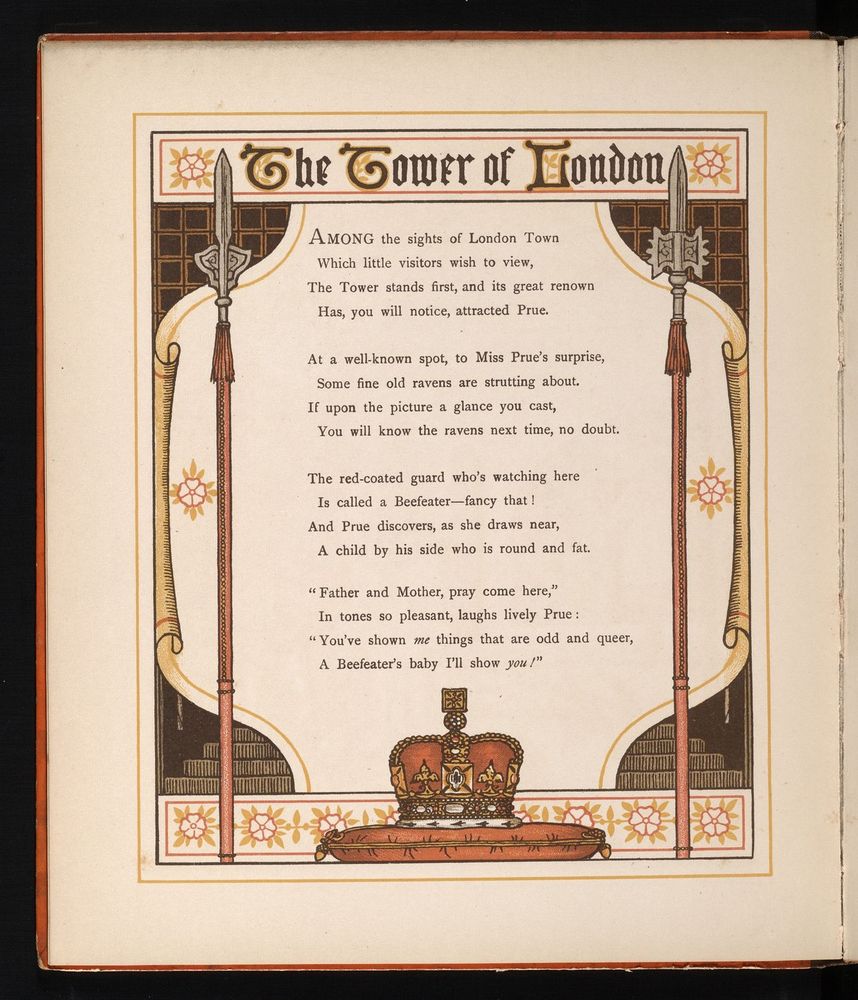 The Tower of London
AMONG the sights of London Town
Which little visitors wish to view,
The Tower stands first, and its great renown
Has, you will notice, attracted Prue.
At a well-known spot, to Miss Prue's surprise,
Some fine old ravens are strutting about.
If upon the picture a glance you cast,
You will know the ravens next time, no doubt.
The red-coated guard who's watching here
Is called a Beefeater—fancy that!
And Prue discovers, as she draws near,
A child by his side who is round and fat.
"Father and Mother, pray come here,"
In tones so pleasant, laughs lively Prue:
"You've shown me things that are odd and queer,
A Beefeater's baby I'll show you!"